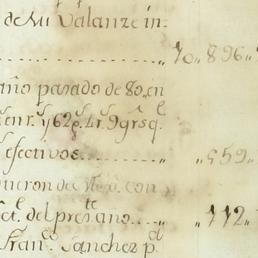 de Mi Valanze in-
..... „ 70„896„
año pasado de 80, en
enr.s y 62 p.s 4 r.s 9 grs q.e
efectivos ..... „ „559„
mieron de con
ct.l del pres.te año .... „ „112„
Fran.co Sanchez p.r